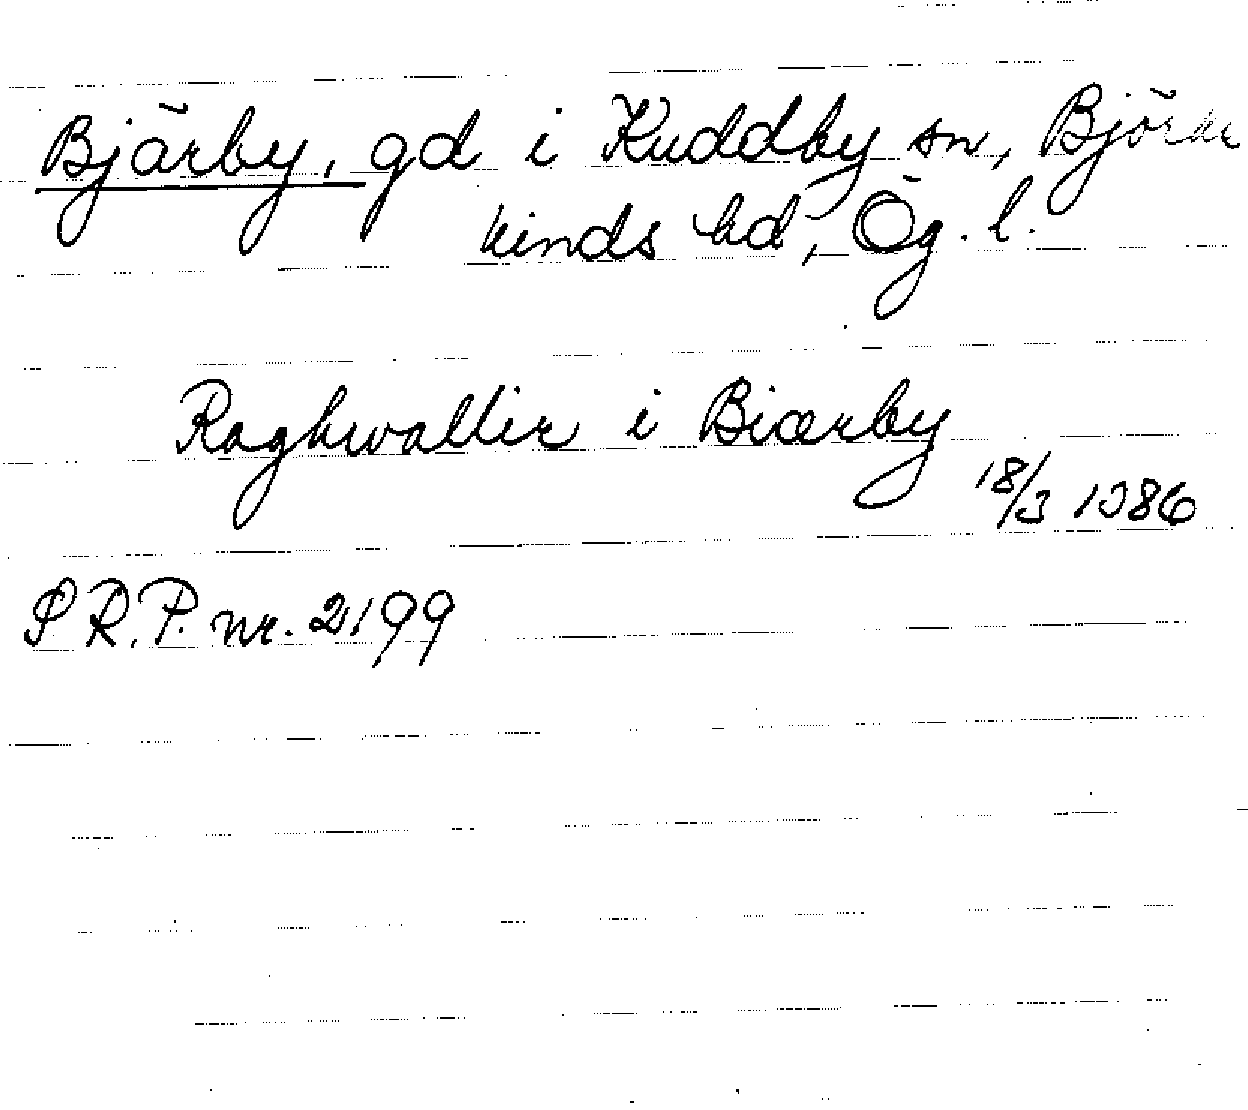 Bjärby, gd i Kuddby sn, Björke
kinds hd, Ög. l.
Raghwaller i Biærby
18/3 1386
S R. P. nr. 2199